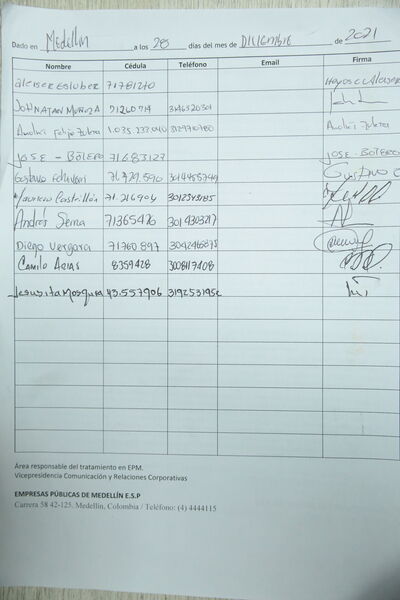 Dado en Medellín a los 28 días del mes de Diciembre de 2021
Nombre Cédula Teléfono Email Firma
71781240
JOHNATAN MUÑOZ 71260714
Andrés Felipe Zuleta Andrés Zuleta
JOSE - BOTERO 71.683127 JOSE-BOTERO
Gustavo Echavarri
Mauricio Castrillón 71.216904 3012343185
Andrés Serna 71365476 3014303217
Diego Vergara 71760897 304246875
CAMILO ARIAS 8359428 3008117408
Jesusita Mosquera 43.557906 3192531956
Área responsable del tratamiento en EPM.
Vicepresidencia Comunicación y Relaciones Corporativas
EMPRESAS PÚBLICAS DE MEDELLÍN E.S.P
Carrera 58 42-125. Medellín, Colombia / Teléfono: (4) 4444115